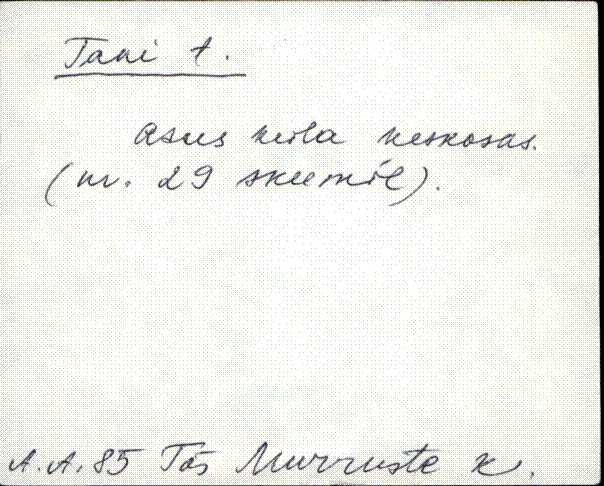 Tani t.
Asus küla keskosas.
(nr. 29 skeemil).
A.A. 85 Tõs Murruste k.